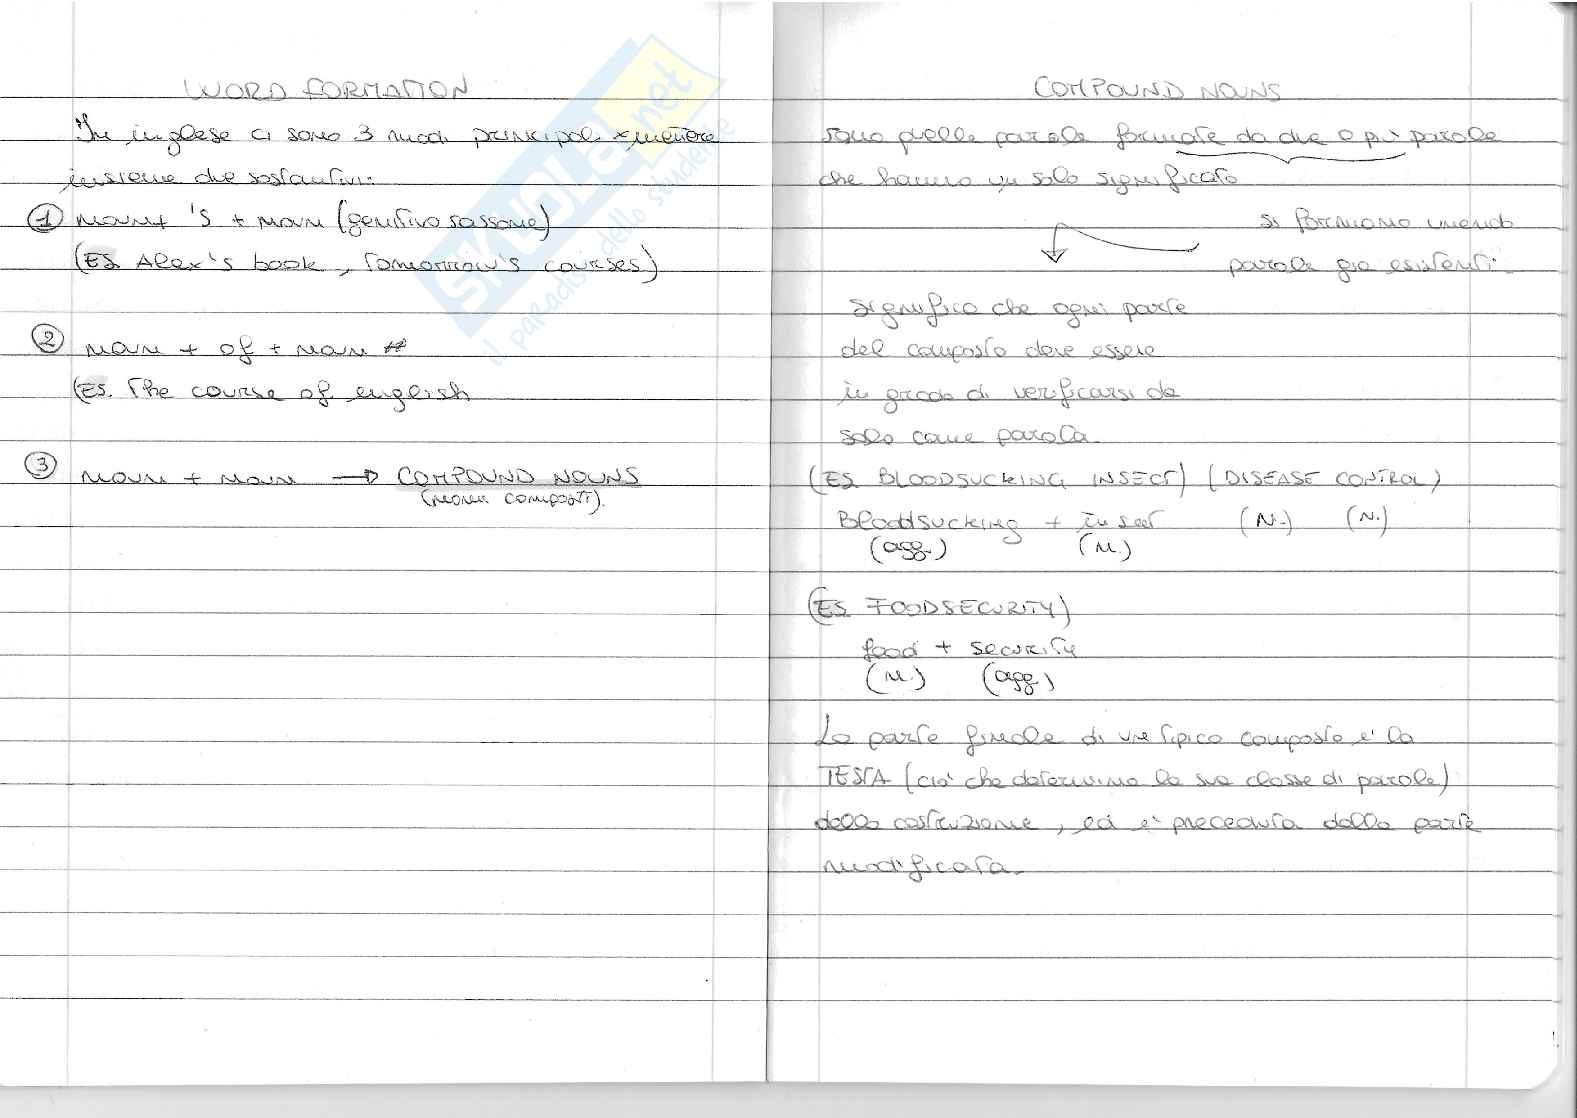 WORD FORMATION
In inglese ci sono 3 modi principali x mettere
insieme due sostantivi:
① noun + 's + noun (genitivo sassone)
(ES. Alex's book, Tomorrow's courses)
② noun + of + noun
(ES. The course of english
③ noun + noun → COMPOUND NOUNS
(nomi composti).
COMPOUND NOUNS
sono quelle parole formate da due o più parole
che hanno un solo significato
si formano unendo
parole già esistenti
significa che ogni parte
del composto deve essere
in grado di verificarsi da
solo come parola.
(ES. BLOODSUCKING INSECT) (DISEASE CONTROL)
Bloodsucking + insect (N.) (N.)
(agg.) (N.)
(ES. FOODSECURITY)
food + security
(N.) (agg.)
La parte finale di un tipico composto e' la
TESTA (ciò che determina la sua classe di parole)
della costruzione, ed e' preceduta dalla parte
modificata.
SKUOLA.net
il paradiso dello studente